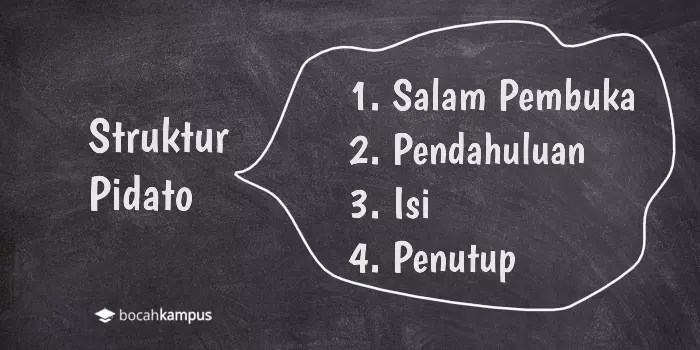 Struktur
Pidato
1. Salam Pembuka
2. Pendahuluan
3. Isi
4. Penutup
bocahkampus